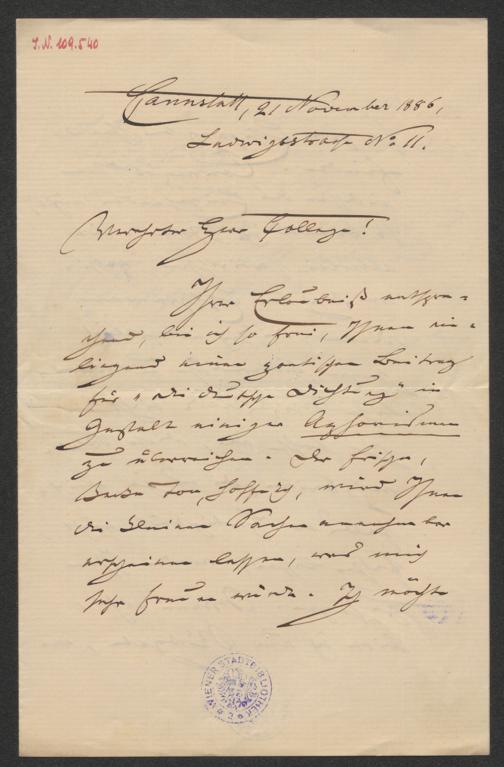 I.N. 109.540
Cannstatt, 21 November 1886,
Ludwigsstraße No. 11.
Verehrter Herr College!
Ihrer Erlaubniß entspre-
chend, bin ich so frei, Ihnen ein-
liegend einen poetischen Beitrag
für "Die deutsche Dichtung" in
Gestalt einiger Aphorismen
zu überreichen. Der frische,
Ton, hoffe ich, wird Ihnen
die kleinen Sachen annehmbar
erscheinen lassen, was mich
sehr freuen würde. Ich möchte
WIENER STADTBIBLIOTHEK